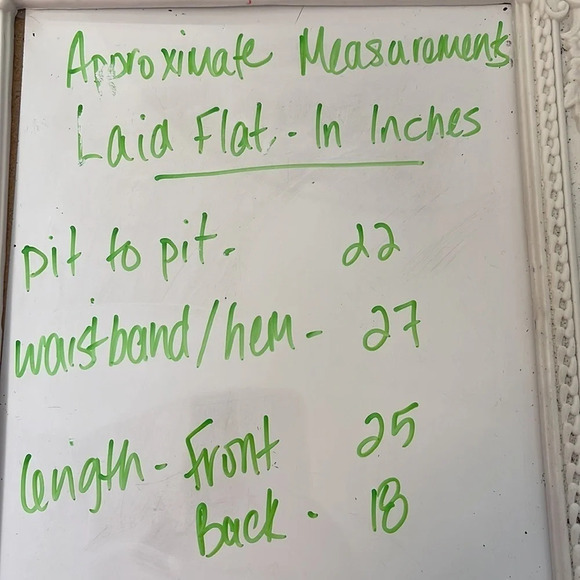 Approximate Measurements
Laid Flat. - In Inches
pit to pit. 22
waistband/hem - 27
length - Front 25
Back. 18